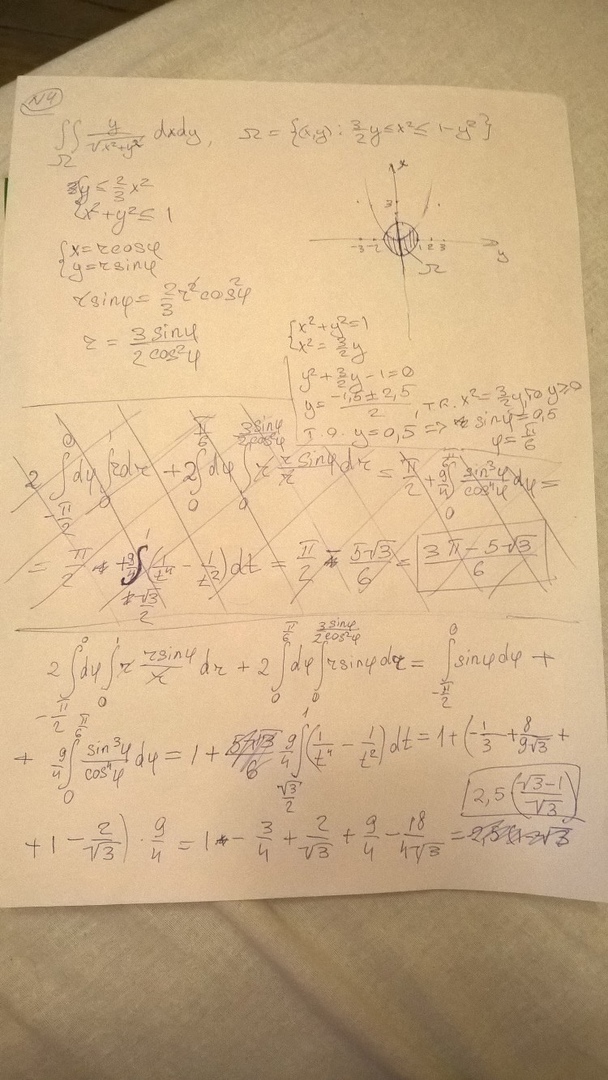 N4
∬_Ω y/√(x²+y²) dxdy, Ω = {(x,y): 3/2 y ≤ x² ≤ 1-y²}
{y ≤ 2/3 x²
x²+y² ≤ 1
{x = r cosφ
y = r sinφ
r sinφ = 2/3 r² cos²φ
r = 3 sinφ / 2 cos²φ
x
3
-3 -2 1 2 3
y
Ω
{x²+y²=1
x² = 3/2 y
y² + 3/2 y - 1 = 0
y = (-1,5 ± 2,5)/2, т.к. x² = 3/2 y, то y ≥ 0
Т.о. y = 0,5 ⇒ r sinφ = 0,5
φ = π/6
2 ∫_{-π/2}^0 dφ ∫_0^1 r dr + 2 ∫_0^{π/6} dφ ∫_0^{3sinφ/2cos²φ} r r/r sinφ dr = π/2 + 9/4 ∫_0^{π/6} sin³φ/cos⁴φ dφ =
= π/2 + 9/4 ∫_{√3/2}^1 (1/t⁴ - 1/t²) dt = π/2 - 5√3/6 = 3π - 5√3 / 6
2 ∫_{-π/2}^0 dφ ∫_0^1 r r sinφ/r dr + 2 ∫_0^{π/6} dφ ∫_0^{3sinφ/2cos²φ} r sinφ dr = ∫_{-π/2}^0 sinφ dφ +
+ 9/4 ∫_0^{π/6} sin³φ/cos⁴φ dφ = 1 + 5√3/6 9/4 ∫_{√3/2}^1 (1/t⁴ - 1/t²) dt = 1 + (-1/3 + 8/9√3 +
+ 1 - 2/√3) · 9/4 = 1 - 3/4 + 2/√3 + 9/4 - 18/4√3 = 2,5 (√3-1/√3)